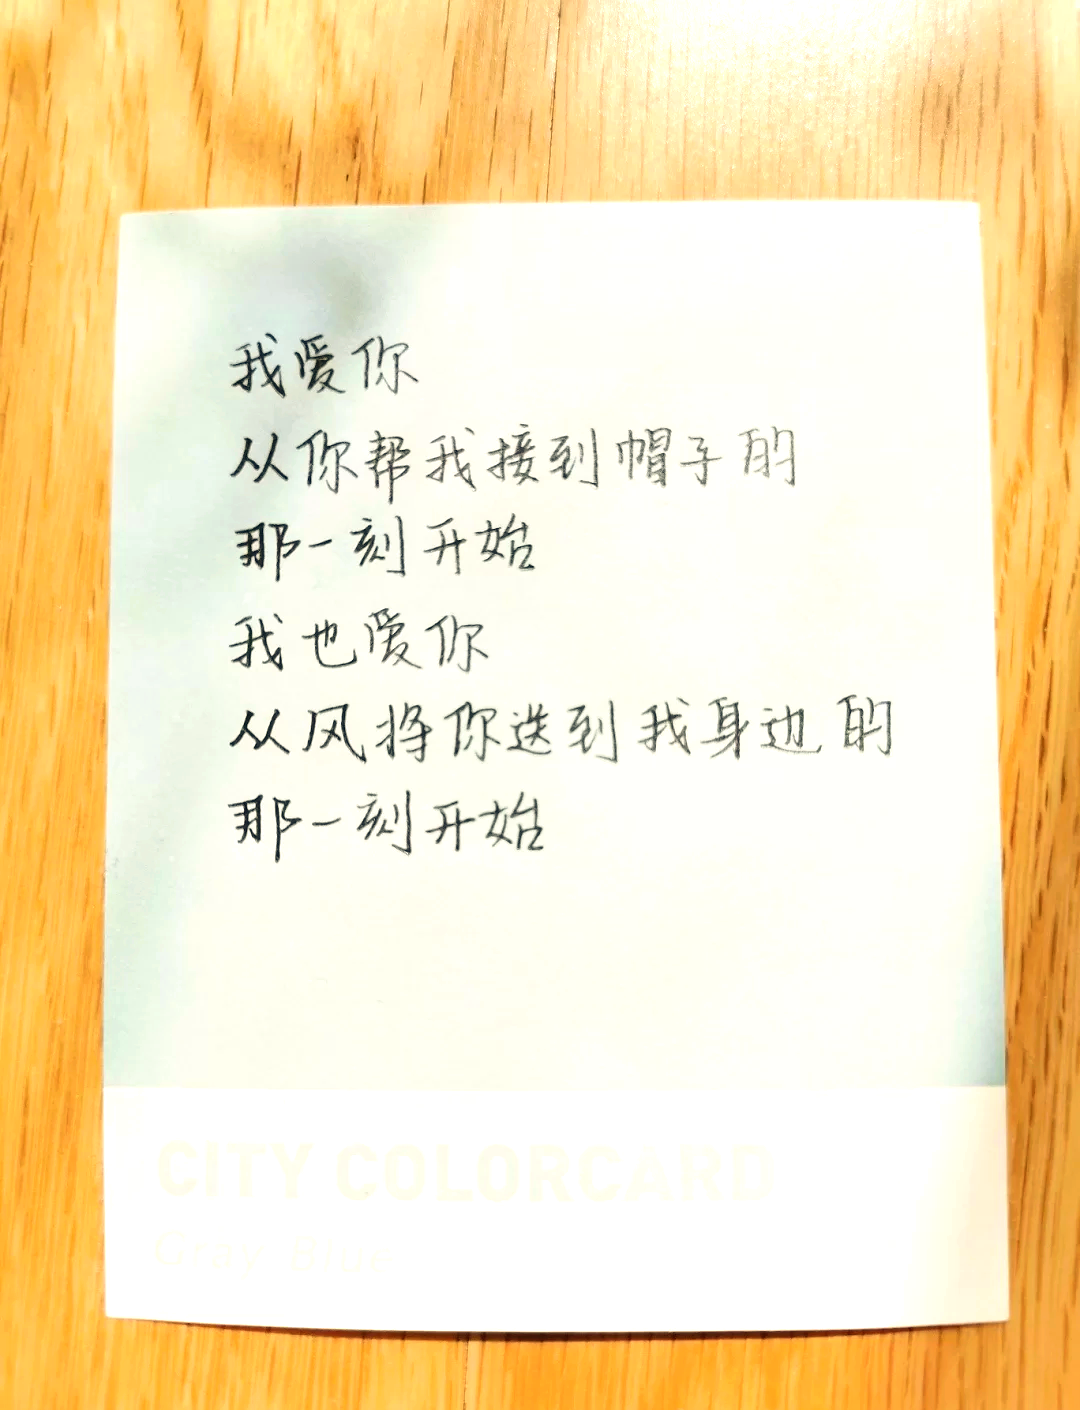 我爱你
从你帮我接到帽子的
那一刻开始
我也爱你
从风将你送到我身边的
那一刻开始
CITY COLORCARD
Gray Blue